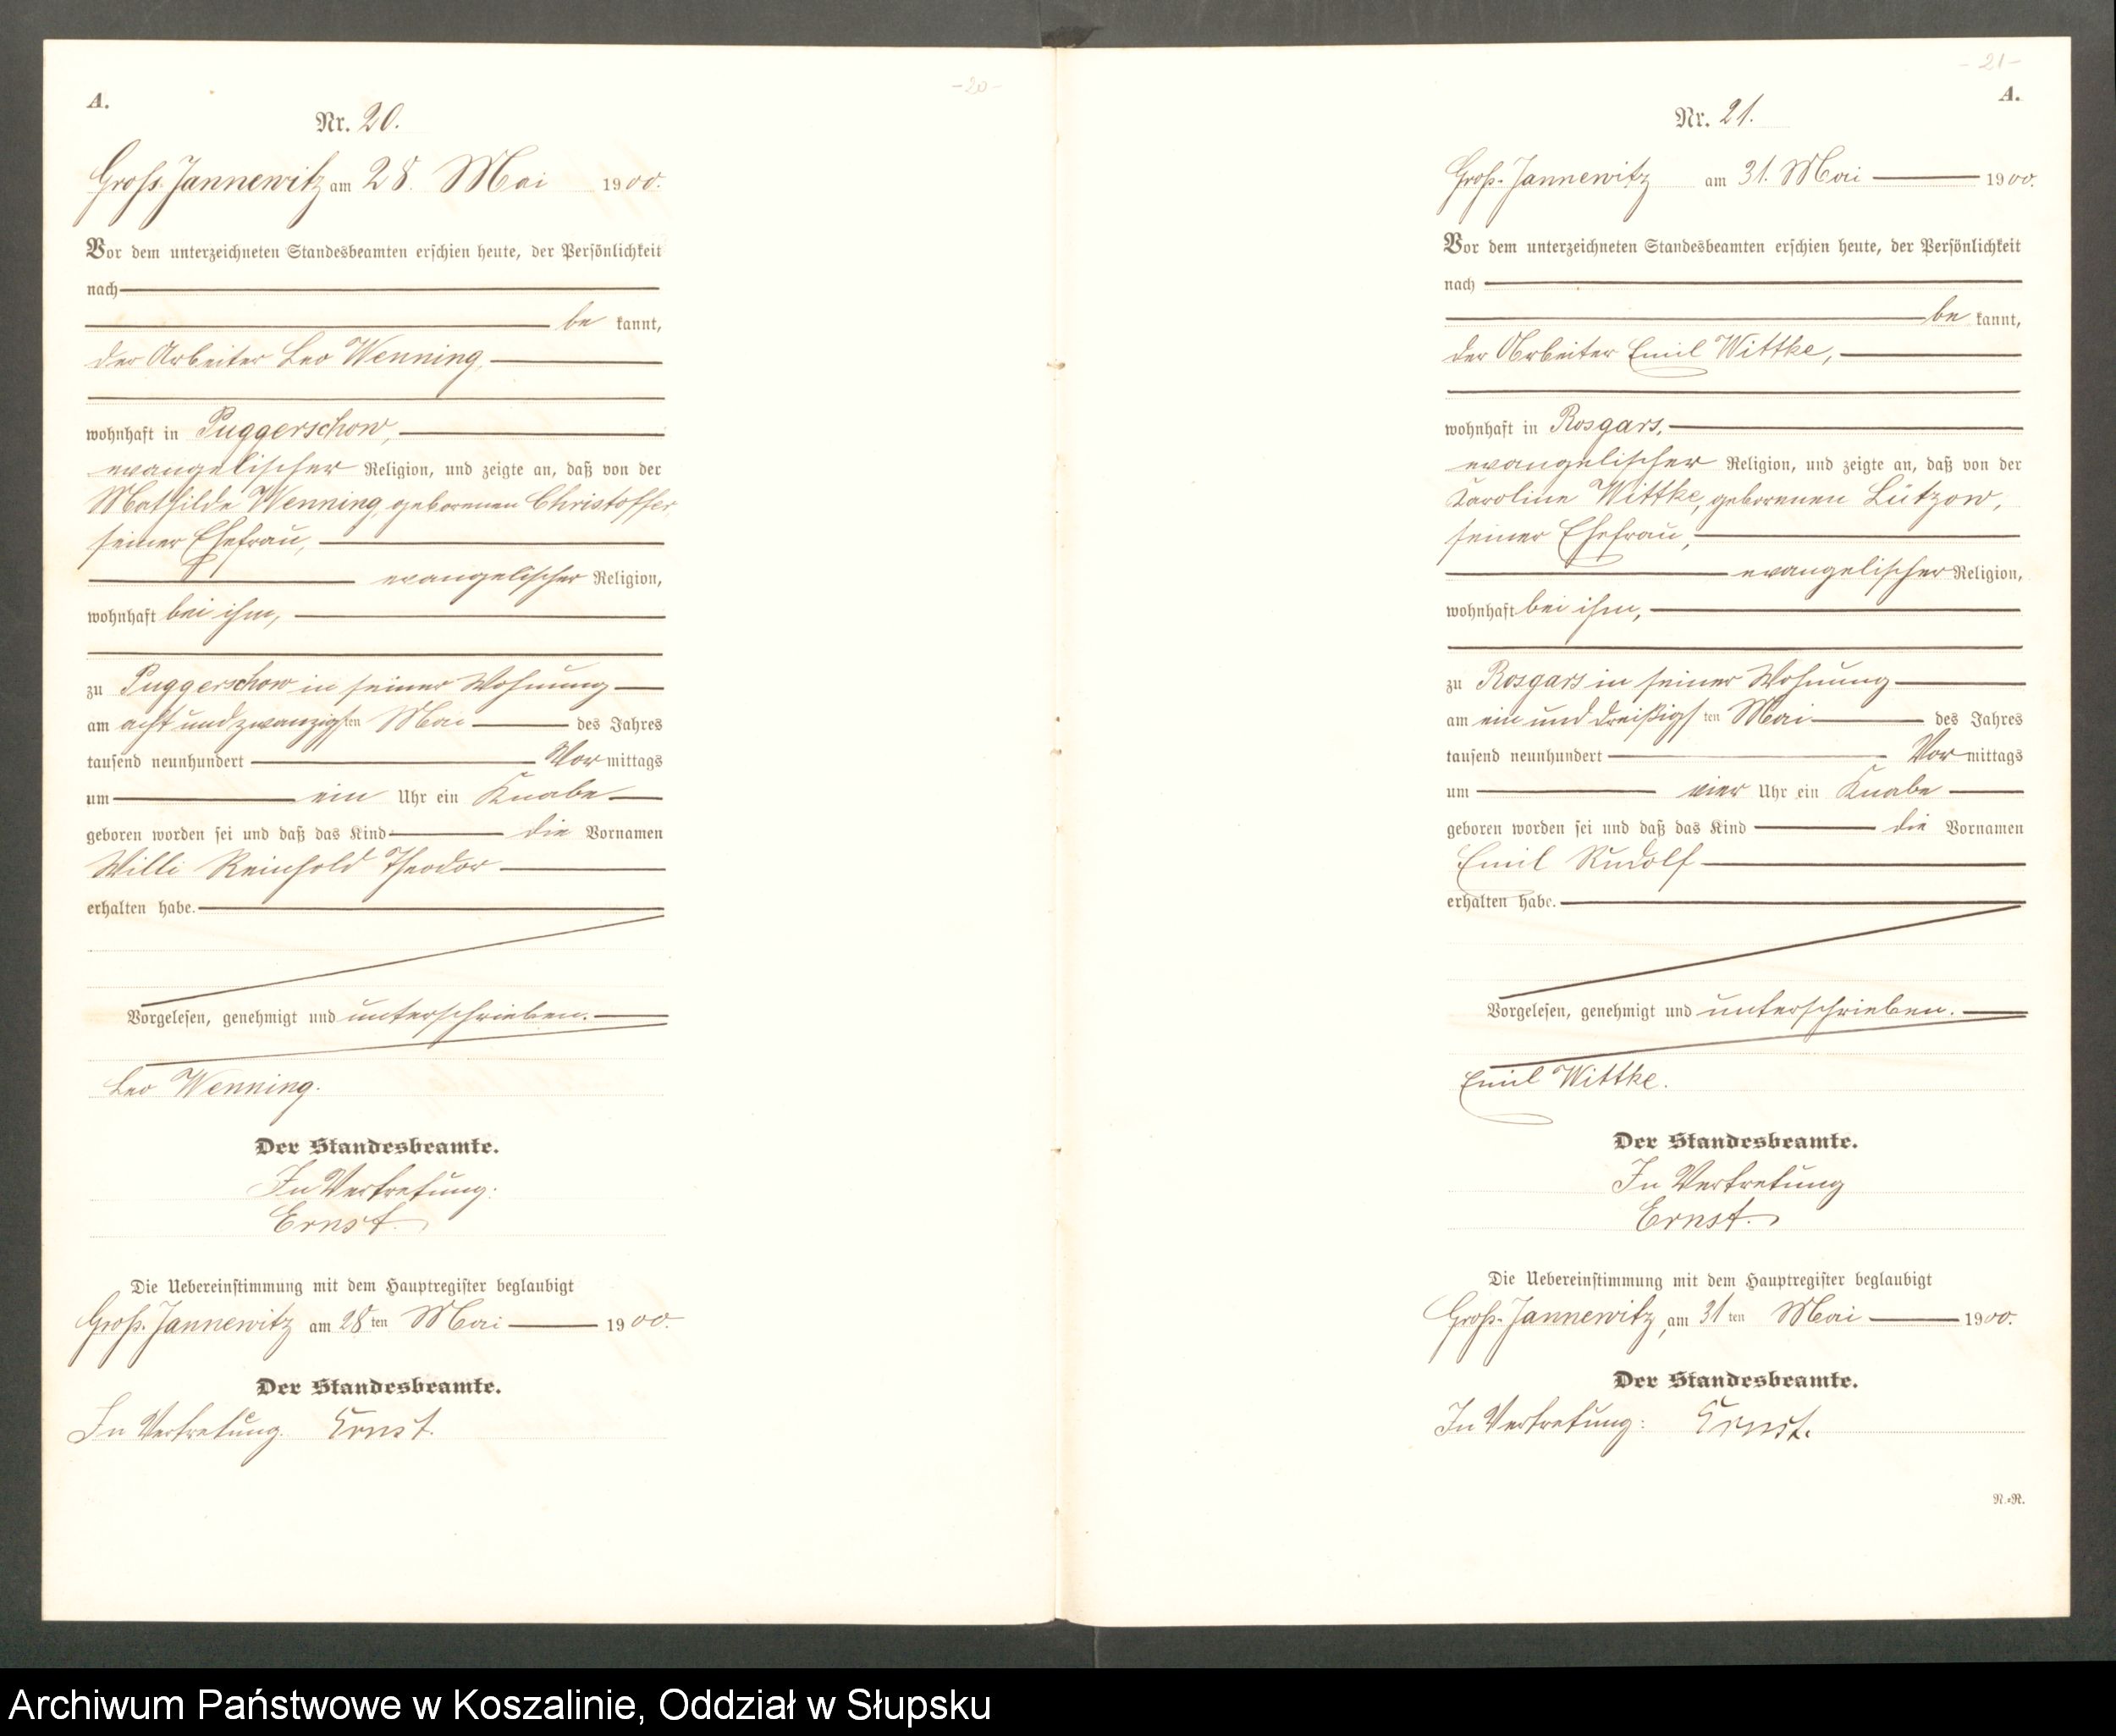 -20-
A.
Nr. 20.
Groß-Jannewitz am 28. Mai 1900.
Vor dem unterzeichneten Standesbeamten erschien heute, der Persönlichkeit
nach
be kannt,
der Arbeiter Leo Wenning,
wohnhaft in Puggerschow,
evangelischer Religion, und zeigte an, daß von der
Mathilde Wenning, geborenen Christoffer
seiner Ehefrau,
evangelischer Religion,
wohnhaft bei ihm,
zu Puggerschow in seiner Wohnung
am acht und zwanzigsten Mai des Jahres
tausend neunhundert Vormittags
um ein Uhr ein Knabe
geboren worden sei und daß das Kind die Vornamen
Willi Reinhold Theodor
erhalten habe.
Vorgelesen, genehmigt und unterschrieben.
Leo Wenning.
Der Standesbeamte.
In Vertretung:
Ernst.
Die Uebereinstimmung mit dem Hauptregister beglaubigt
Groß-Jannewitz am 28ten Mai 1900.
Der Standesbeamte.
In Vertretung. Ernst.
-21-
A.
Nr. 21.
Groß-Jannewitz am 31. Mai 1900.
Vor dem unterzeichneten Standesbeamten erschien heute, der Persönlichkeit
nach
be kannt,
der Arbeiter Emil Wittke,
wohnhaft in Rosgars,
evangelischer Religion, und zeigte an, daß von der
Karoline Wittke, geborenen Lützow,
seiner Ehefrau,
evangelischer Religion,
wohnhaft bei ihm,
zu Rosgars in seiner Wohnung
am ein und dreißigsten Mai des Jahres
tausend neunhundert Vormittags
um vier Uhr ein Knabe
geboren worden sei und daß das Kind die Vornamen
Emil Rudolf
erhalten habe.
Vorgelesen, genehmigt und unterschrieben.
Emil Wittke.
Der Standesbeamte.
In Vertretung
Ernst.
Die Uebereinstimmung mit dem Hauptregister beglaubigt
Groß-Jannewitz, am 31ten Mai 1900.
Der Standesbeamte.
In Vertretung: Ernst.
N.=R.
Archiwum Państwowe w Koszalinie, Oddział w Słupsku